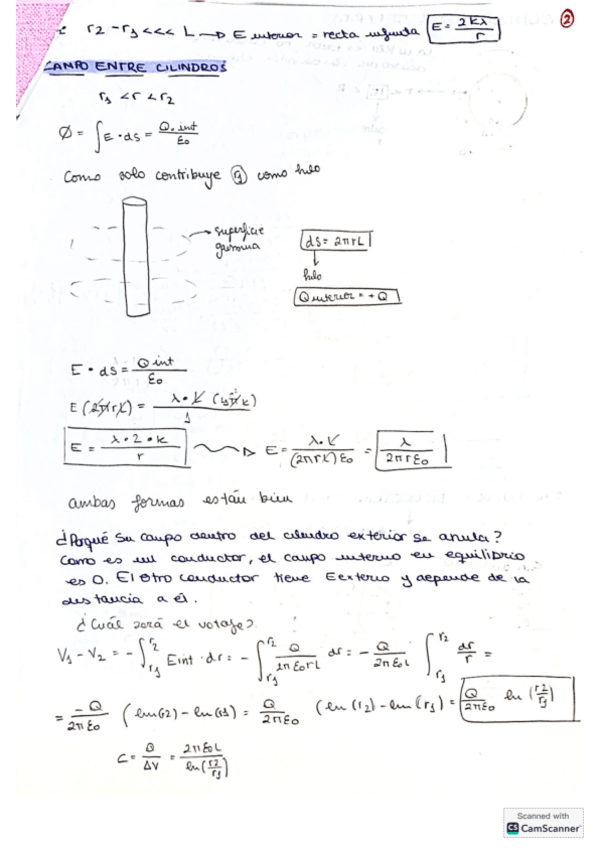 r2 - r1 <<< L → E interior = recta infinita E = 2kλ/r
2
CAMPO ENTRE CILINDROS
r1 < r < r2
Ø = ∫E·ds = Q.int/ε0
Como solo contribuye q como hilo
superficie
gaussiana
ds = 2πrL
hilo
Qinterior = +Q
E · ds = Q int/ε0
E (2πrL) = λ·L (4πk)/1
E = λ·2·k/r → E = λ·L/(2πrL)ε0 = λ/2πrε0
ambas formas están bien
¿Porqué su campo dentro del cilindro exterior se anula?
Como es un conductor, el campo interno en equilibrio
es 0. El otro conductor tiene Eexterno y depende de la
distancia a él.
¿Cuál será el voltaje?
V1 - V2 = - ∫r1 r2 Eint · dr = - ∫r1 r2 Q/2πε0rL dr = - Q/2πε0L ∫r1 r2 dr/r =
= -Q/2πε0 (ln(r2) - ln(r1) = Q/2πε0 (ln(r2) - ln(r1) = Q/2πε0 ln(r2/r1)
C = Q/ΔV = 2πε0L/ln(r2/r1)
Scanned with
CS CamScanner